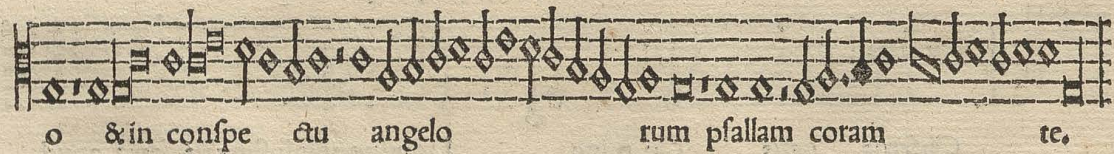 o &in conſpe ctu angelo rum pſallam coram te.